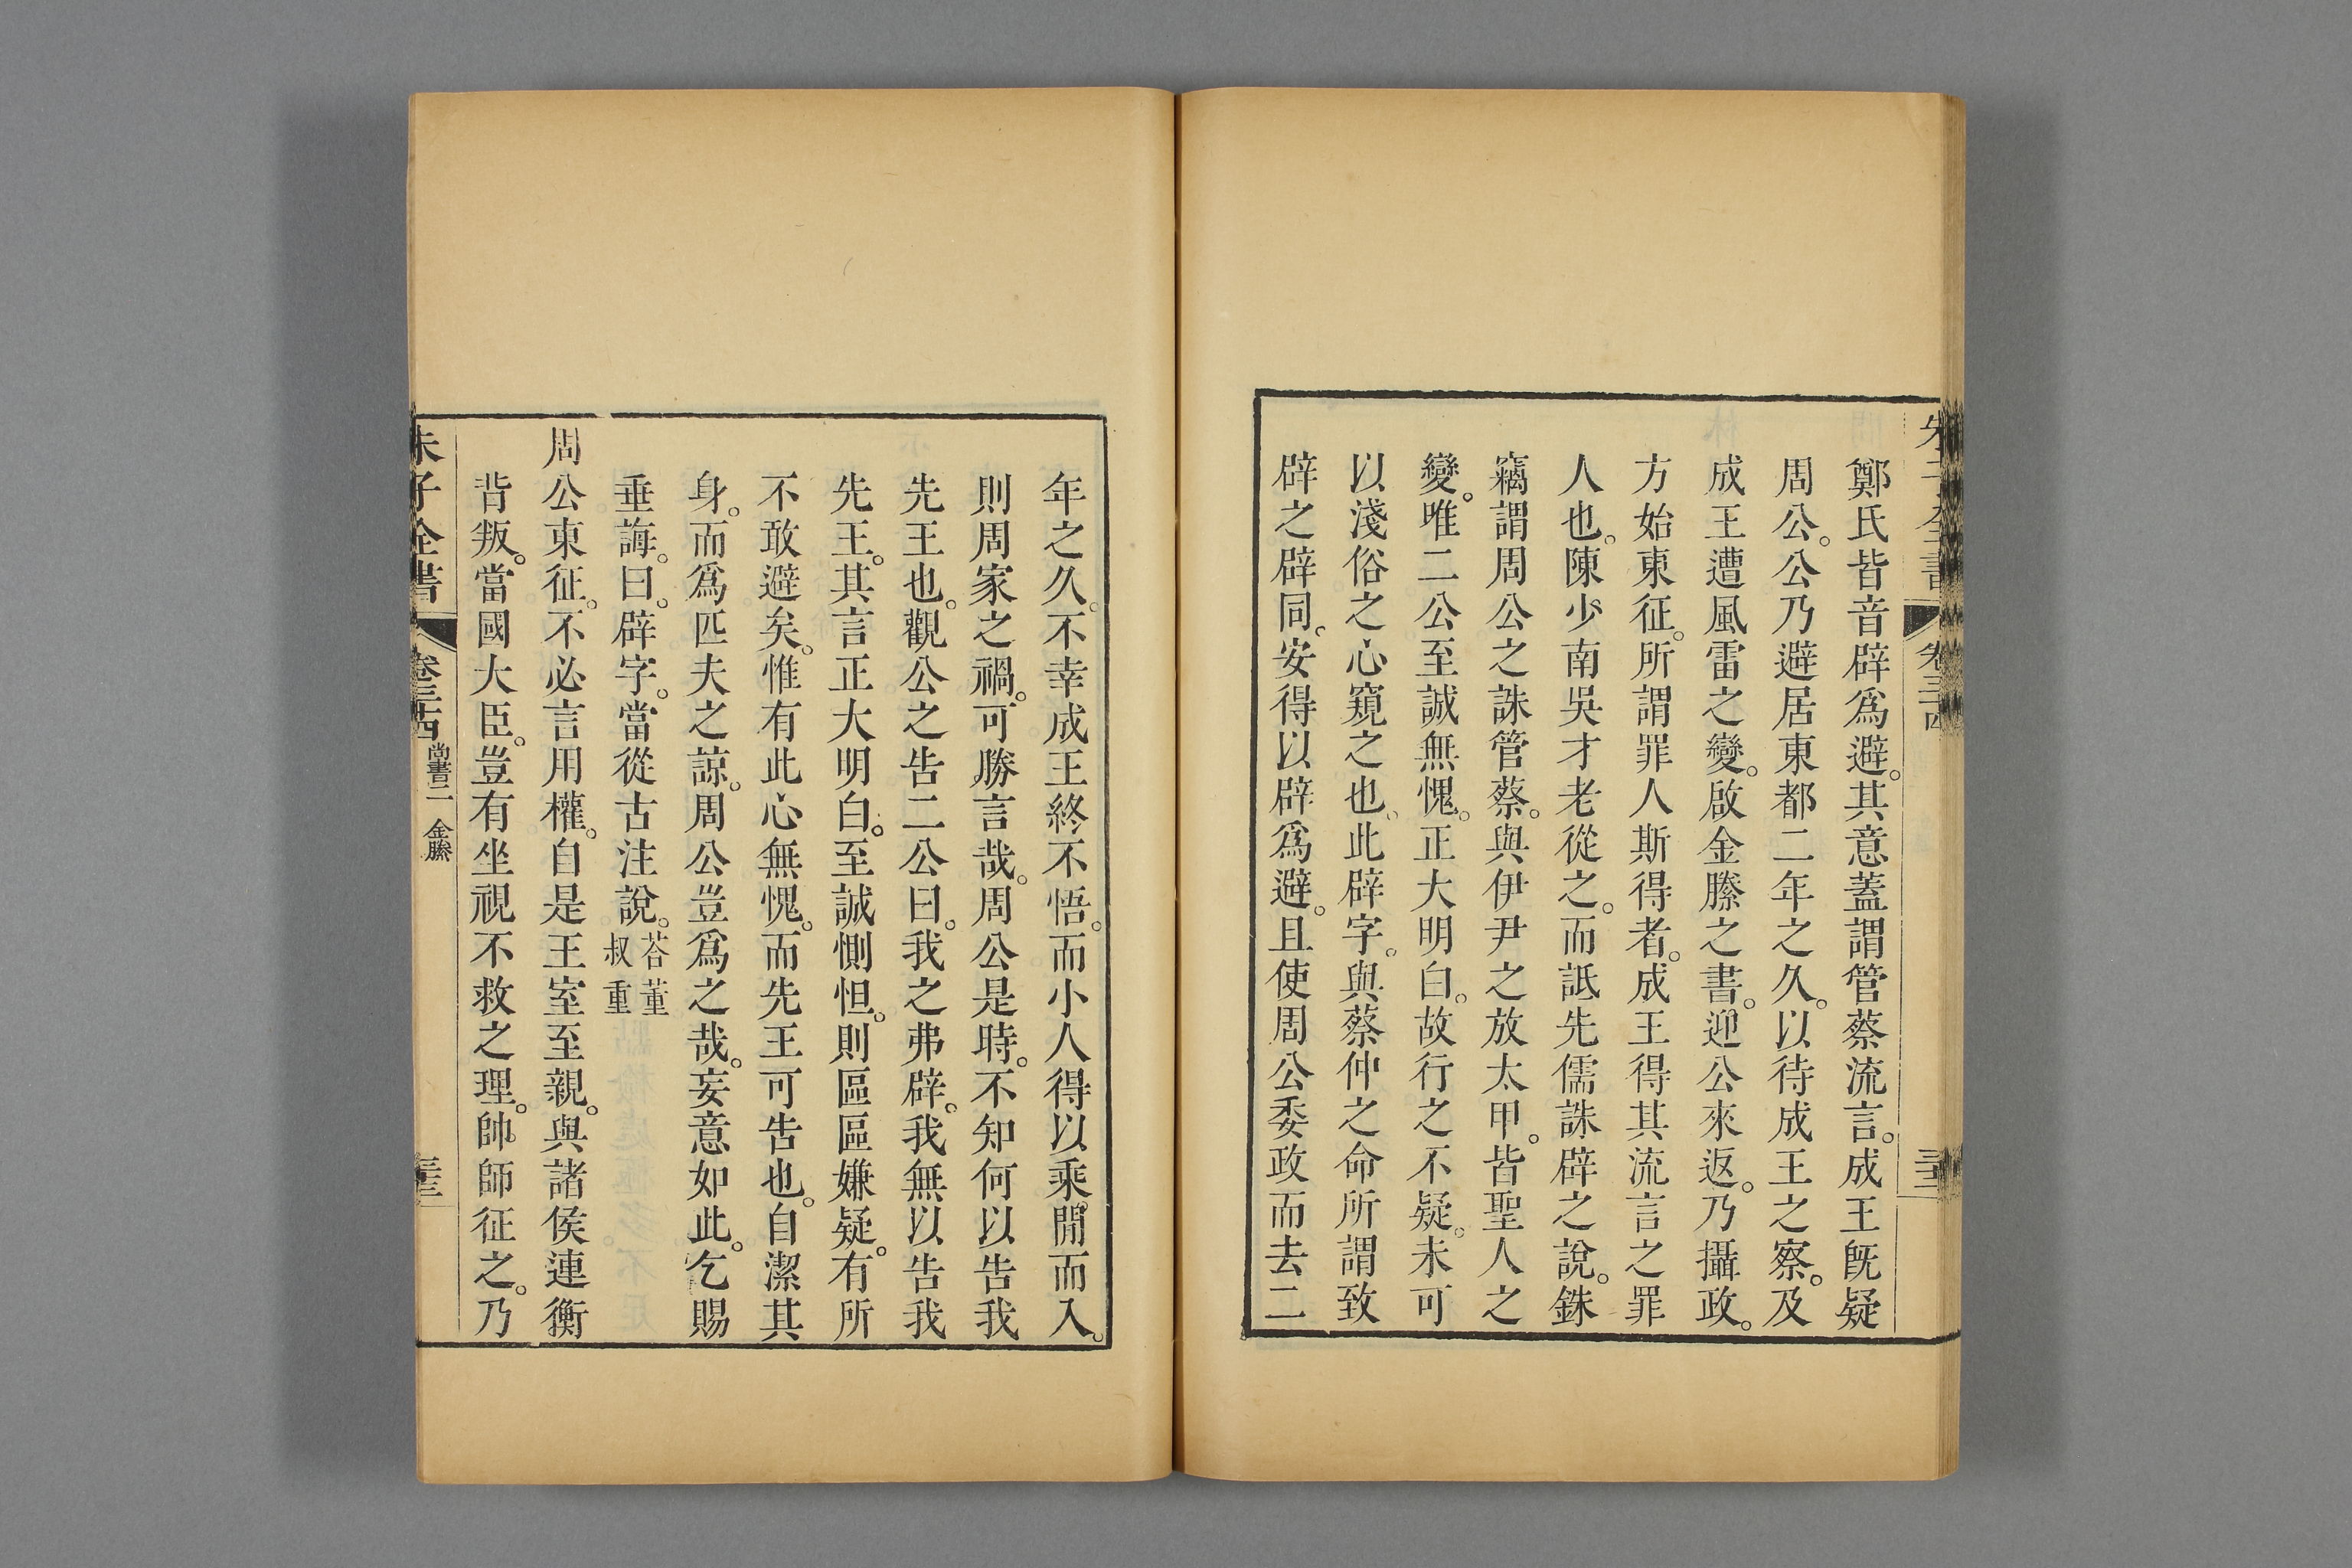 朱子全書 卷三十四 三十三
鄭氏皆音辟爲避。其意蓋謂管蔡流言。成王旣疑
周公。公乃避居東都二年之久。以待成王之察。及
成王遭風雷之變。啟金縢之書。迎公來返。乃攝政。
方始東征。所謂罪人斯得者。成王得其流言之罪
人也。陳少南吳才老從之。而詆先儒誅辟之說。銖
竊謂周公之誅管蔡。與伊尹之放太甲。皆聖人之
變。唯二公至誠無愧。正大明白。故行之不疑。未可
以淺俗之心窺之也。此辟字。與蔡仲之命所謂致
辟之辟同。安得以辟爲避。且使周公委政而去二
年之久。不幸成王終不悟。而小人得以乘閒而入。
則周家之禍。可勝言哉。周公是時。不知何以告我
先王也。觀公之告二公曰。我之弗辟。我無以告我
先王。其言正大明白。至誠惻怛。則區區嫌疑。有所
不敢避矣。惟有此心無愧。而先王可告也。自潔其
身。而爲匹夫之諒。周公豈爲之哉。妄意如此。乞賜
垂誨。曰。辟字。當從古注說。荅董叔重
周公東征。不必言用權。自是王室至親。與諸侯連衡
背叛。當國大臣。豈有坐視不救之理。帥師征之。乃
朱子全書 卷三十四 尚書二 金縢 三十三